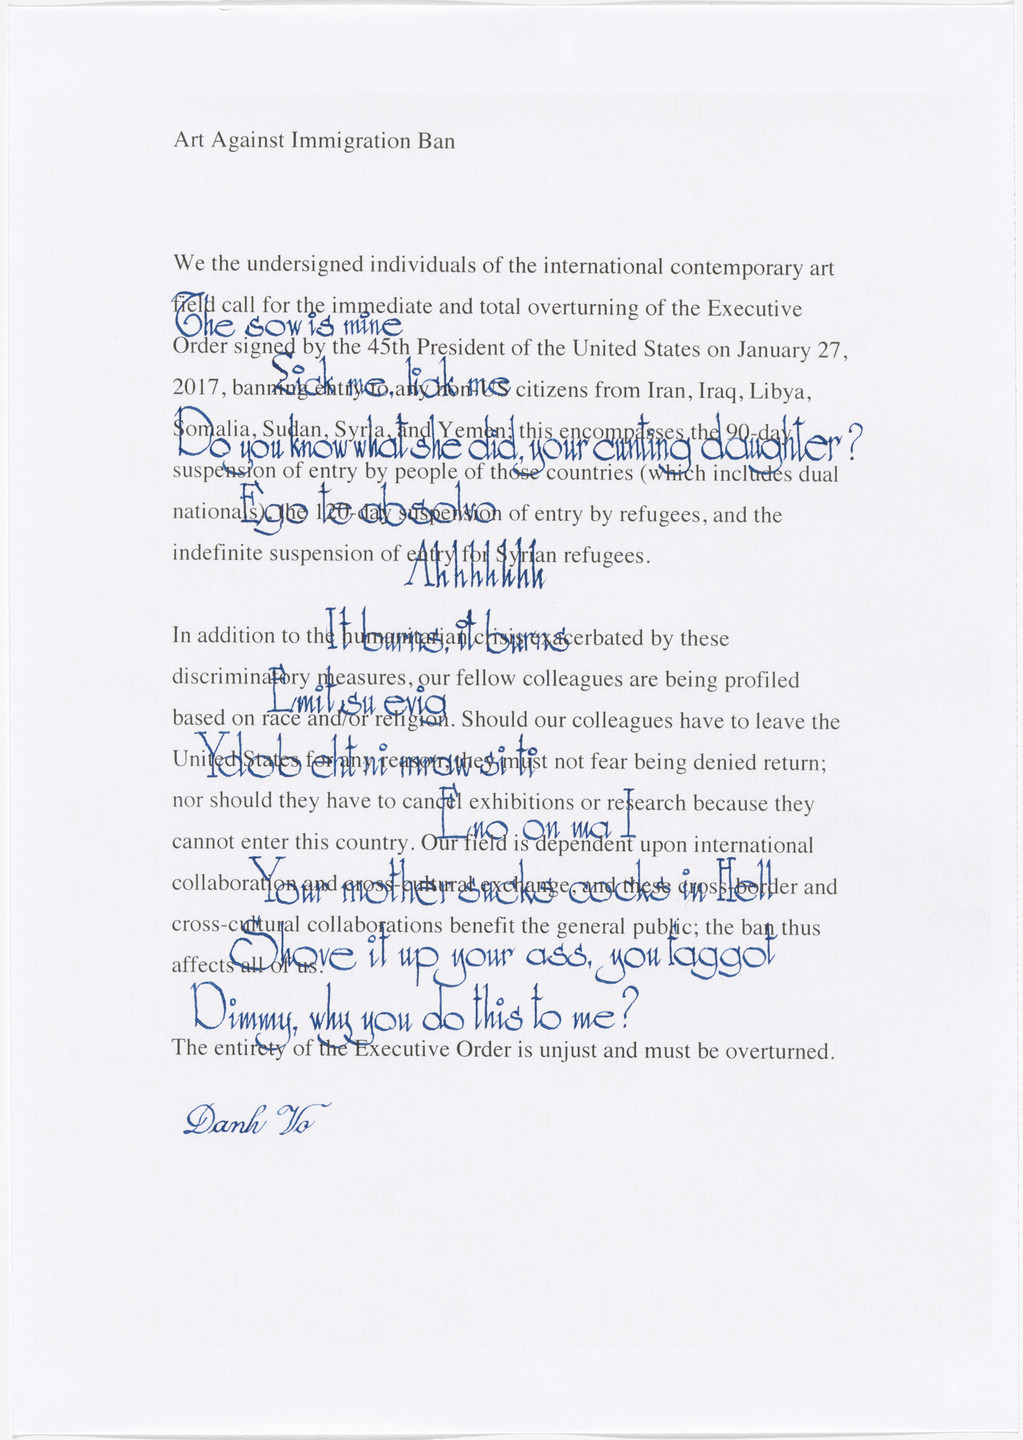 Art Against Immigration Ban
We the undersigned individuals of the international contemporary art
field call for the immediate and total overturning of the Executive
The sow is mine
Order signed by the 45th President of the United States on January 27,
Lick me, lick me
2017, banning entry to any non-US citizens from Iran, Iraq, Libya,
Somalia, Sudan, Syria, and Yemen; this encompasses the 90-day
Do you know what she did, your cunting daughter?
suspension of entry by people of those countries (which includes dual
Ego te absolvo
nationals), the 120-day suspension of entry by refugees, and the
indefinite suspension of entry for Syrian refugees.
Ahhhhhhh
It burns, it burns
In addition to the humanitarian crisis exacerbated by these
discriminatory measures, our fellow colleagues are being profiled
Emit su evig
based on race and/or religion. Should our colleagues have to leave the
Ydob eht ni mraw si ti
United States for any reason, they must not fear being denied return;
nor should they have to cancel exhibitions or research because they
Eno on ma I
cannot enter this country. Our field is dependent upon international
Your mother sucks cocks in Hell
collaboration and cross-cultural exchange, and these cross-border and
cross-cultural collaborations benefit the general public; the ban thus
Shove it up your ass, you faggot
affects all of us.
Dimmy, why you do this to me?
The entirety of the Executive Order is unjust and must be overturned.
Danh Vo